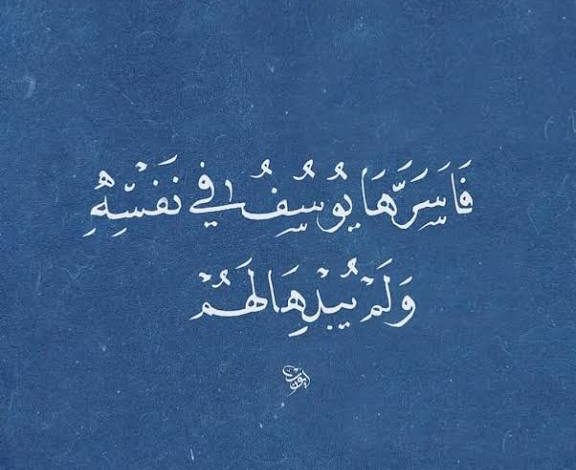 فَأَسَرَّهَا يُوسُفُ فِي نَفْسِهِ
وَلَمْ يُبْدِهَا لَهُمْ